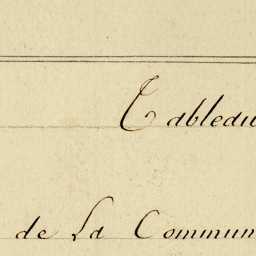 Tableau
de La Commun